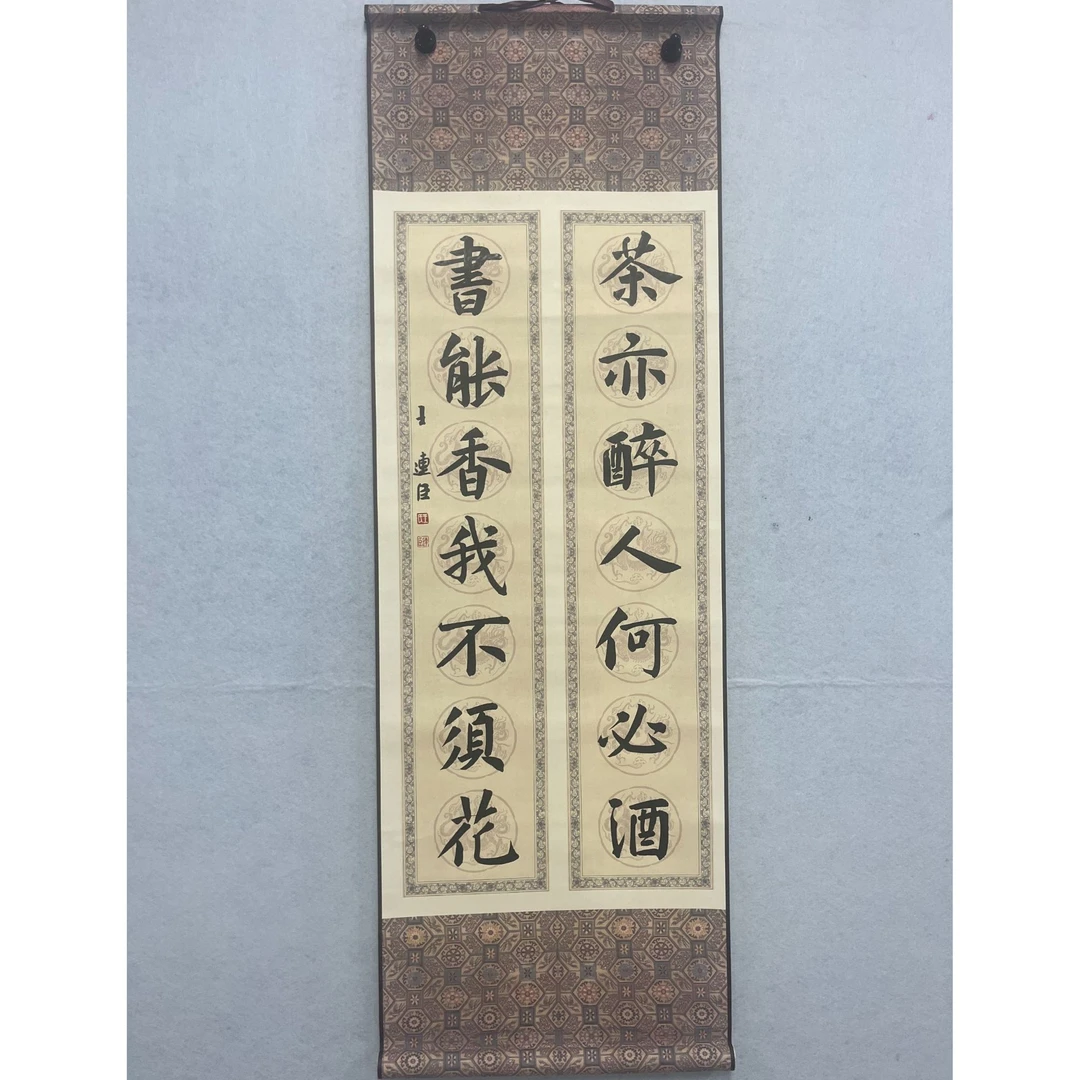 茶亦醉人何必酒
書能香我不須花
王連臣